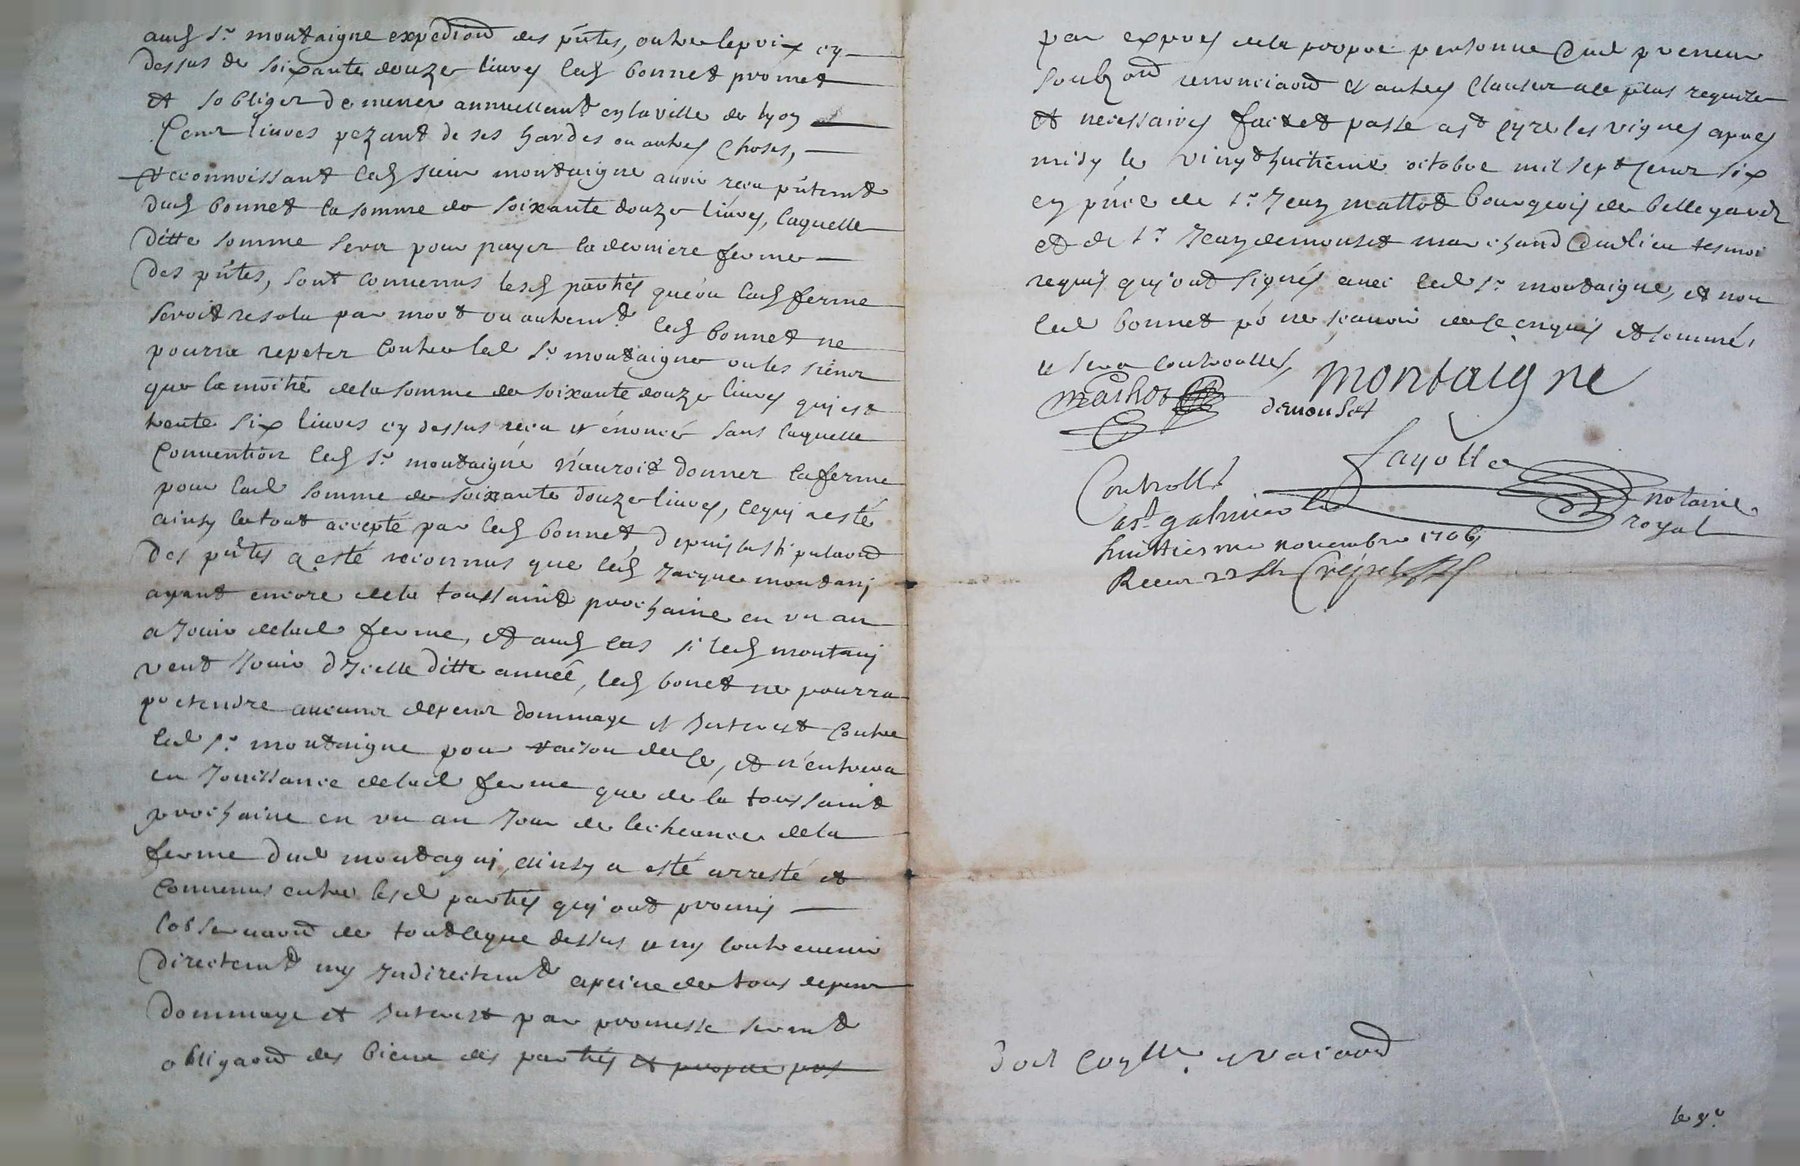 aud sr montaigne expediõn des pñtes, outre le prix cy
dessus de soixante douze livres led bonnet promet
et sobliger de mener annuellemt en la ville de lyon
Cent livres pezant de ses hardes ou autres choses,
reconnoissant led sieur montaigne avoir receu pñtemt
dud bonnet la somme de soixante douze livres, laquelle
ditte somme sera pour payer la derniere ferme
des pñtes, sont convenus lesd parties que ou lad ferme
seroit resolu par mort ou autremt led bonnet ne
pourra repeter contre led sr montaigne ou les siens
que la moitié de la somme de soixante douze livres qui est
trente six livres cy dessus receu et énoncée sans laquelle
Convention led sr montaigne n'auroit donner la ferme
pour lad somme de soixante douze livres, ce qui a esté
ainsy le tout accepté par led bonnet, depuis la stipulaõn
des pñtes a esté reconnus que led Jacques montani
ayant encore de la toussaint prochaine en un an
a Jouir de lad ferme, et aud cas si led montani
veut Jouir d'Icelle ditte année, led bonet ne pourra
pretendre aucuns depens dommage et Interest contre
led sr montaigne pour raison de ce, et n'entrera
en Jouissance de lad ferme que de la toussaint
prochaine en un an Jour de lecheance de la
ferme dud montagni, ainsy a esté arresté et
convenus entre lesd parties qui ont promis
lobservaõn de tout ce que dessus et ny contrevenir
directemt ny Indirectemt a peine de tous depens
dommage et Interest par promesse sermt
obligaõn des biens des parties et propre pers
par expres de la propre personne dud preneur
soubzon renonciaõn et autres clauses a ce plus requize
et necessaires fait et passé a st Cyre les vignes apres
midy le vingt huitieme octobre mil sept cens six
en pñce de sr Jean mathot bourgeois de bellegarde
et de sr Jean demouset marchand dud lieu tesmoi
requis qui ont signés avec led sr montaigne, et non
led bonnet po ne sçavoir de ce enquis et sommé,
et sera controollés,
mathot
demouset
montaigne
fayolle
notaire
royal
Controllé
a st galmier le
huittiesme novembre 1706
Receu